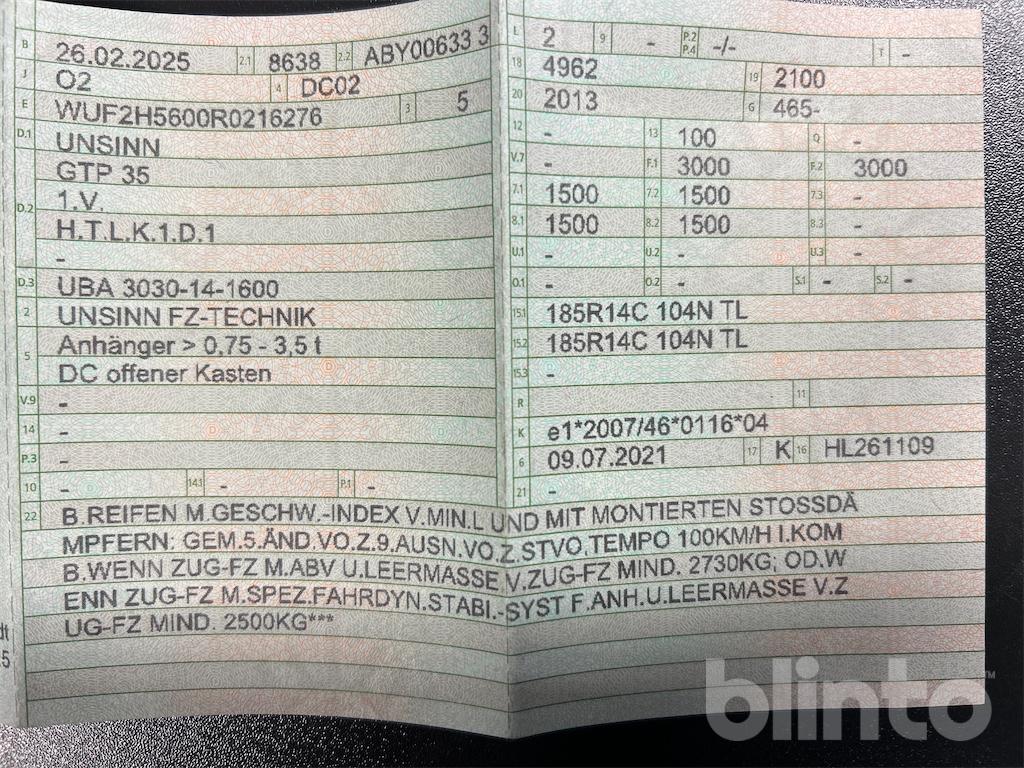 B 26.02.2025 2.1 8638 2.2 ABY00633 3
J O2 4 DC02
E WUF2H5600R0216276 3 5
D.1 UNSINN
GTP 35
D.2 1.V.
H.T.L.K.1.D.1
-
D.3 UBA 3030-14-1600
2 UNSINN FZ-TECHNIK
5 Anhänger > 0,75 - 3,5 t
DC offener Kasten
V.9 -
14 -
P.3 -
10 - 14.1 - P.1 -
L 2 9 - P.2 P.4 -/- T -
18 4962 19 2100
20 2013 G 465-
12 - 13 100 Q -
V.7 - F.1 3000 F.2 3000
7.1 1500 7.2 1500 7.3 -
8.1 1500 8.2 1500 8.3 -
U.1 - U.2 - U.3 -
O.1 - O.2 - S.1 - S.2 -
15.1 185R14C 104N TL
15.2 185R14C 104N TL
15.3 -
R 11
K e1*2007/46*0116*04
6 09.07.2021 17 K 16 HL261109
21 -
22 B.REIFEN M.GESCHW.-INDEX V.MIN.L UND MIT MONTIERTEN STOSSDÄ
MPFERN: GEM.5.ÄND.VO.Z.9.AUSN.VO.Z.STVO.TEMPO 100KM/H I.KOM
B.WENN ZUG-FZ M.ABV U.LEERMASSE V.ZUG-FZ MIND. 2730KG; OD.W
ENN ZUG-FZ M.SPEZ.FAHRDYN.STABI.-SYST F.ANH.U.LEERMASSE V.Z
UG-FZ MIND. 2500KG***
blinto™